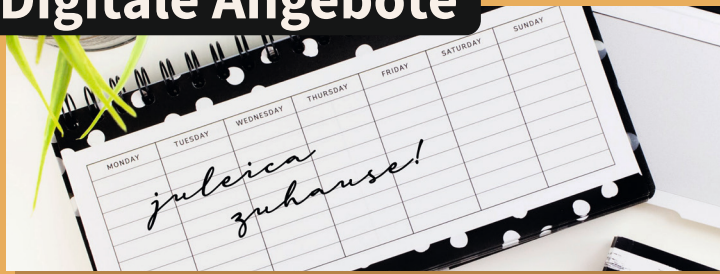 Digitale Angebote
MONDAY TUESDAY WEDNESDAY THURSDAY FRIDAY SATURDAY SUNDAY
juleica
zuhause!